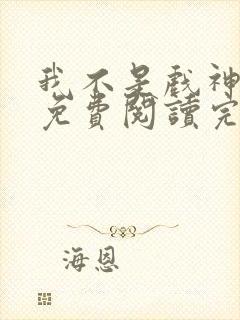 我不是戲神
免費閱讀完
海恩